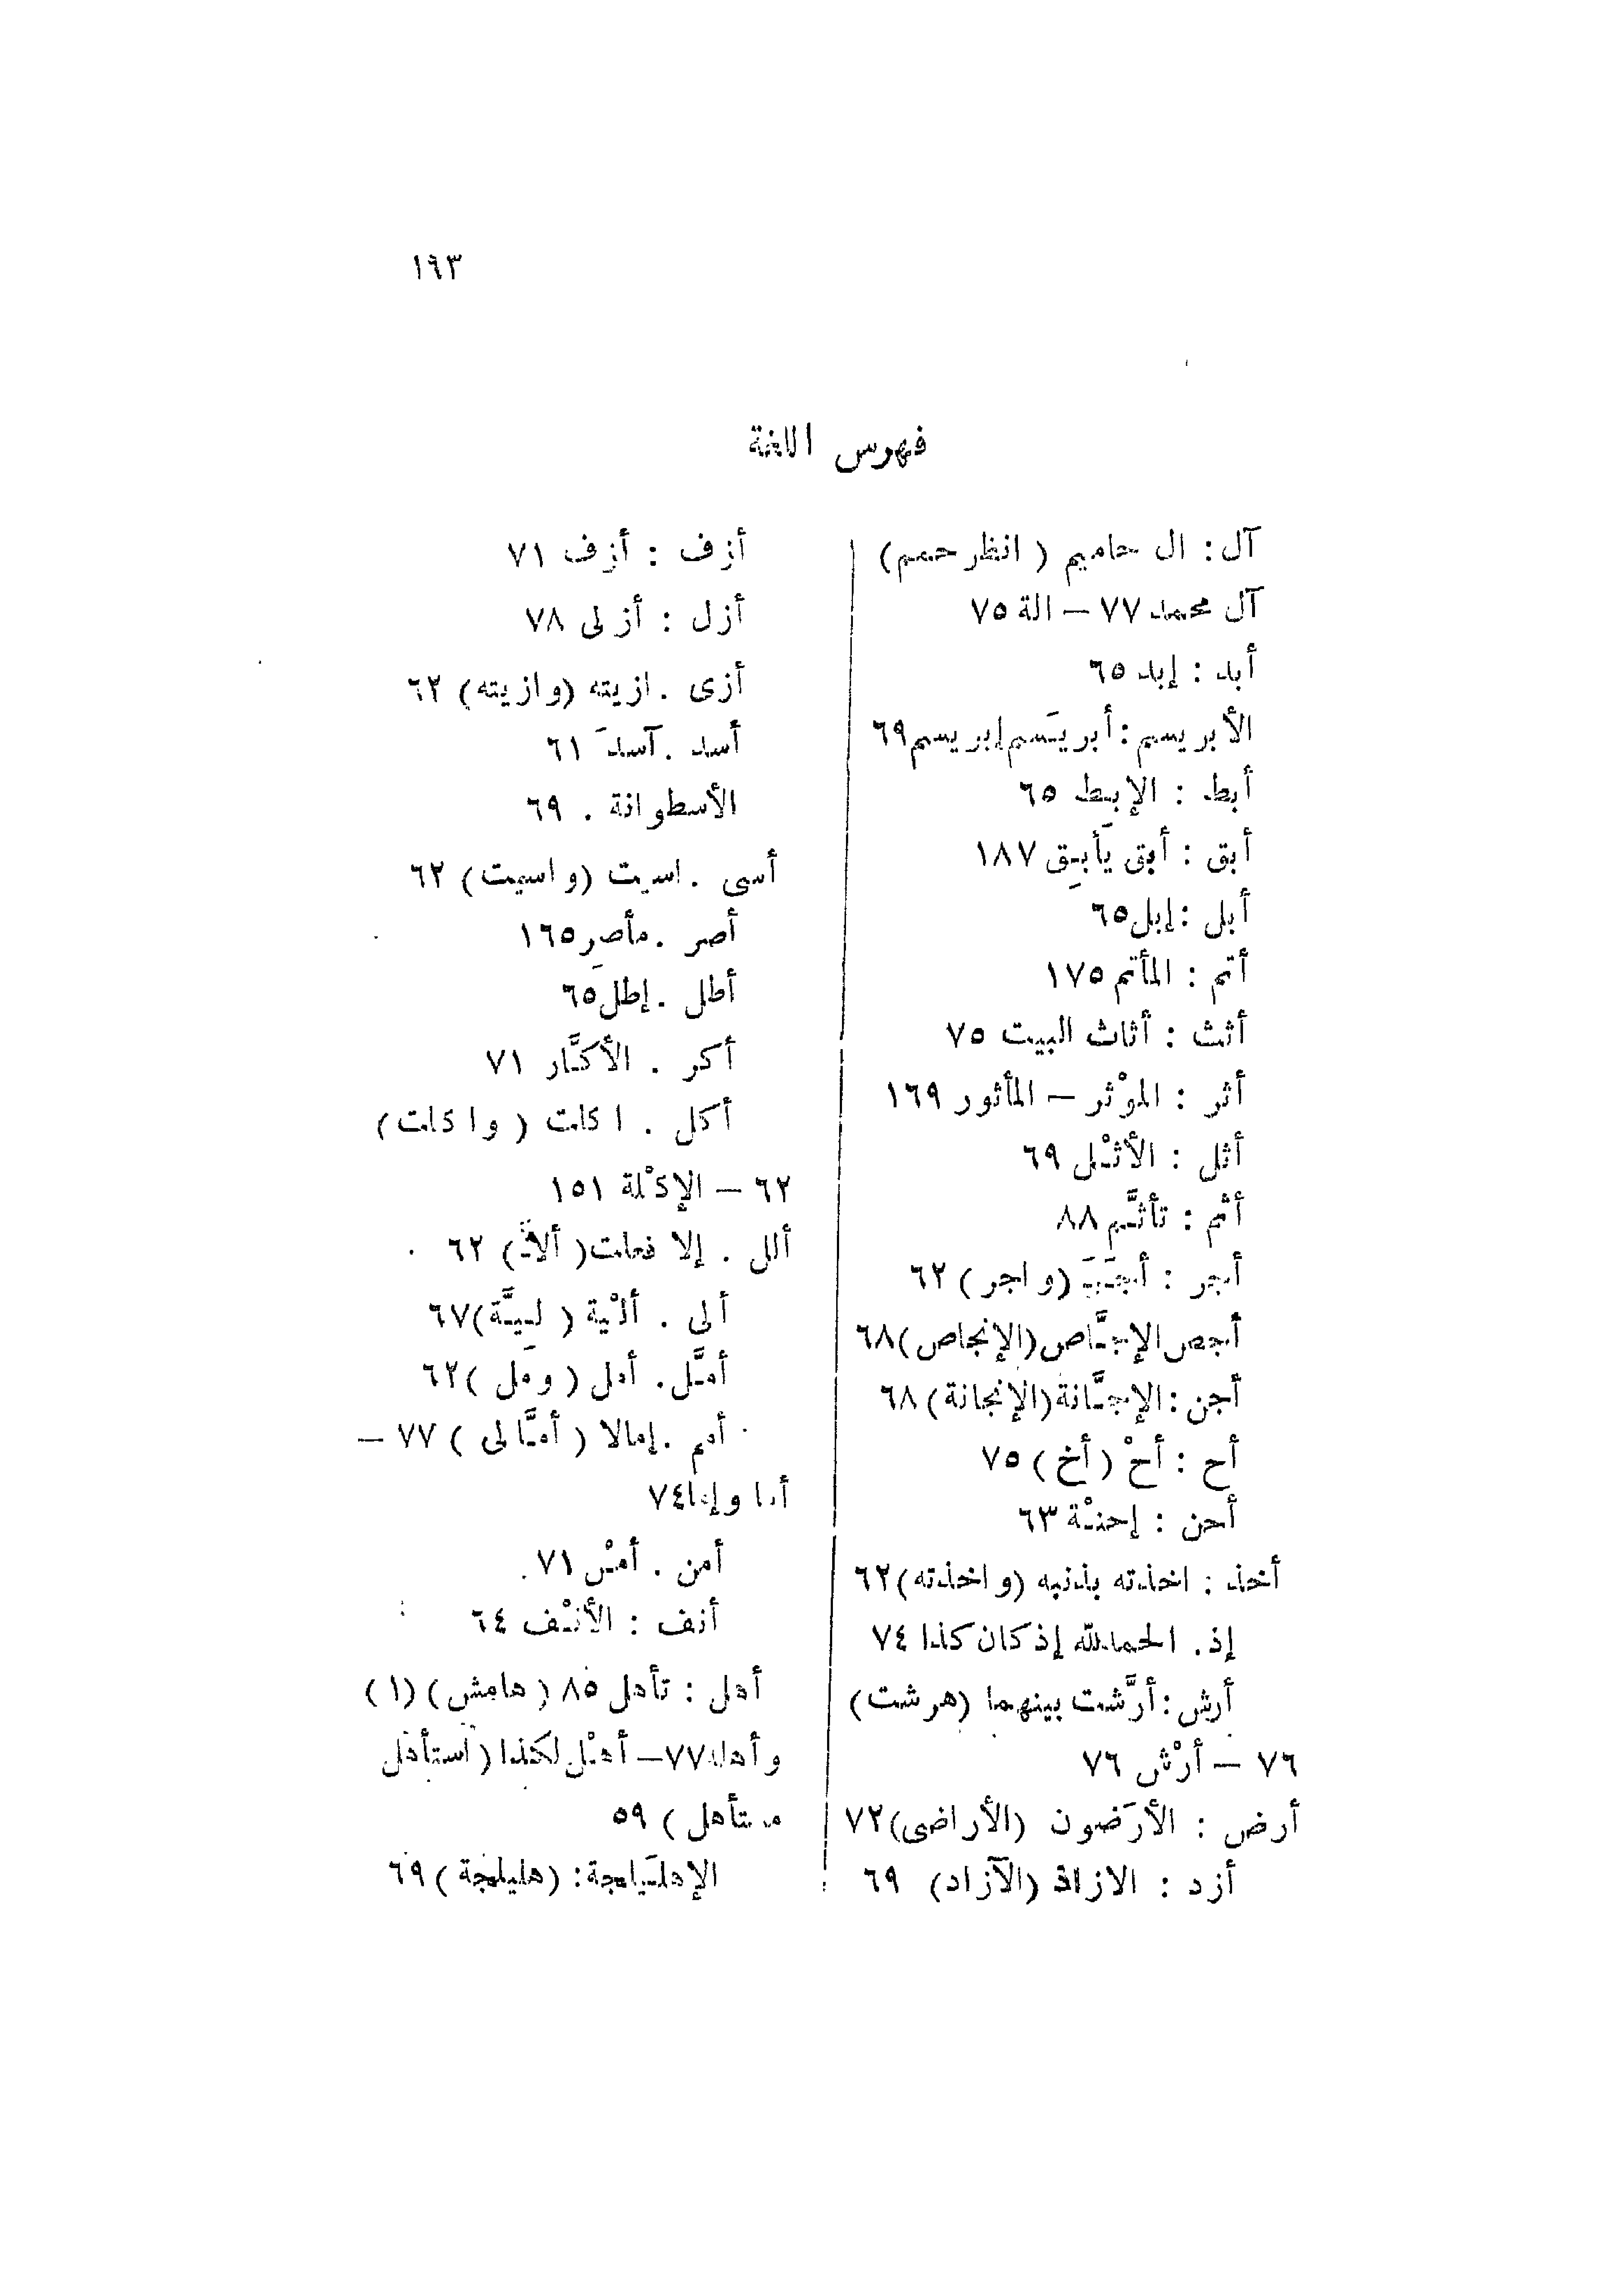 ١٩٣
فهرس اللغة
آل: ال حاميم ( انظر حمم)
آل محمد ٧٧ — الة ٧٥
أبد : إبد ٦٥
الأبريسم: أبريسَم إبريسم ٦٩
أبط : الإبط ٦٥
أبق : أبق يأبِق ١٨٧
أبل : إبل ٦٥
أتم : المأتم ١٧٥
أثث : أثاث البيت ٧٥
أثر : المؤْثر — المأثور ١٦٩
أثل : الأثْل ٦٩
أثم : تأثَّم ٨٨
أجر : (واجر) ٦٢
أجص الإجَّاص (الإنجاص) ٦٨
أجن: الإجَّانة (الإنجانة) ٦٨
أح : أحْ ( أخ ) ٧٥
أحن : إحنْة ٦٣
أخذ : اخذته بذنبه (واخذته) ٦٢
إذ. الحمد لله إذ كان كذا ٧٤
أرش: أرَّشت بينهما (هرشت)
٧٦ — أرْش ٧٦
أرض : الأرَضون (الأراضى) ٧٢
أزد : الازاذ (الآزاد) ٦٩
أزف : أزف ٧١
أزل : أزلى ٧٨
أزى . ازيته (وازيته) ٦٢
أسد . آسدَ ٦١
الأسطوانة . ٦٩
أسى . اسيت (واسيت) ٦٢
أصر . مأصِر ١٦٥
أطل . إطل ٦٥
أكر . الأكَّار ٧١
أكل . اكلت ( واكلت)
٦٢ — الإكْلة ١٥١
ألل . إلا فعلت ( ) ٦٢
ألى . ألْية ( لِيَّة) ٦٧
أمَّل. أمل ( ومل ) ٦٢
أمم . إمالا ( أمَّالى ) ٧٧ —
أما وإما ٧٤
أمن . أمْس ٧١
أنف : الأنْف ٦٤
أهل : تأهل ٨٥ ( هامش) (١)
وأهله ٧٧ — أهْل لكذا ( استأهل
مستأهل ) ٥٩
الإهليلجة: (هليلجة) ٦٩